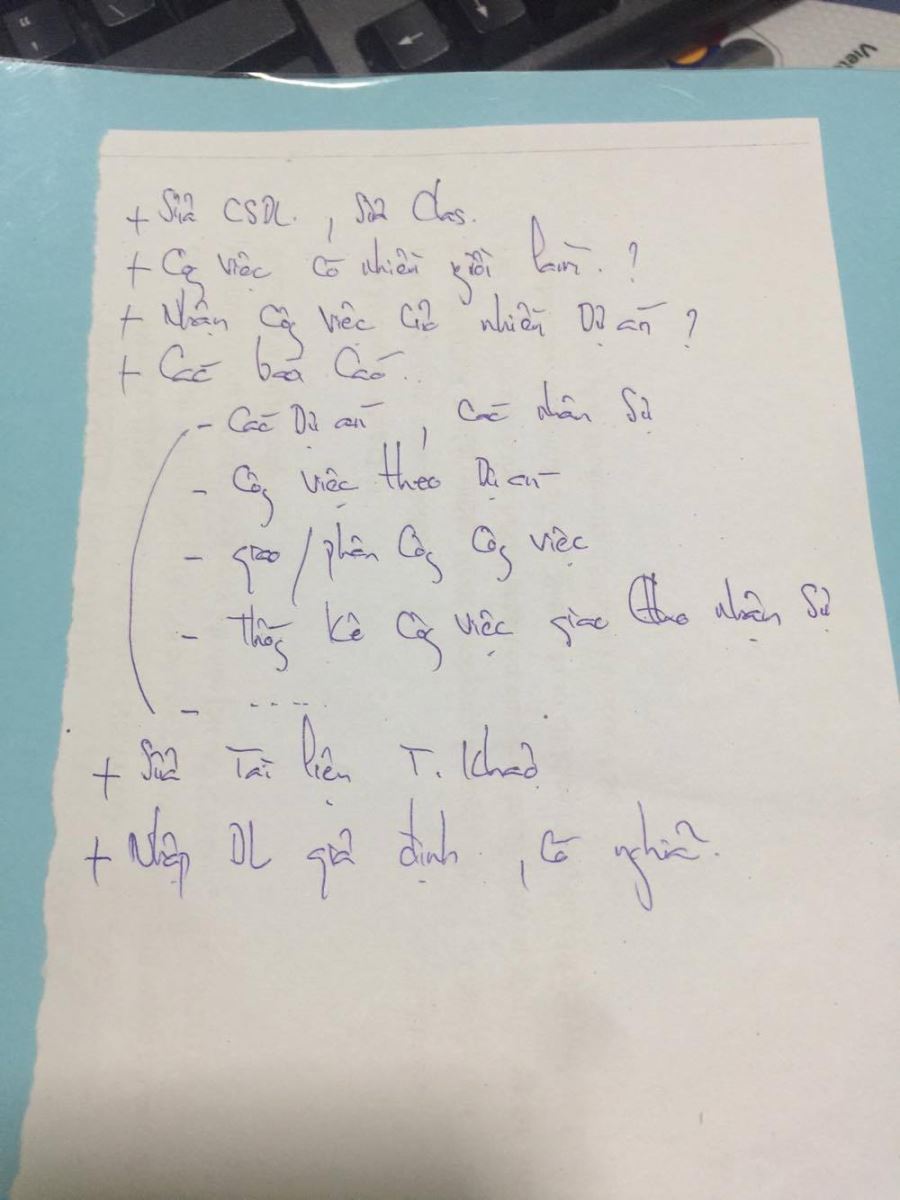 Viet
+ Sửa CSDL. , sửa Clas.
+ Côg việc có nhiều người làm. ?
+ Nhận Côg việc củ nhiều Dự án ?
+ Các báo Cáo..
- Các Dự án , Các nhân Sự
- Côg việc theo Dự án
- giao / phân Côg Côg việc
- thốg kê Côg việc giao theo nhận Sự
- .....
+ Sửa Tài liệu T. Khảo
+ Nhập DL giả định. , có nghĩa.